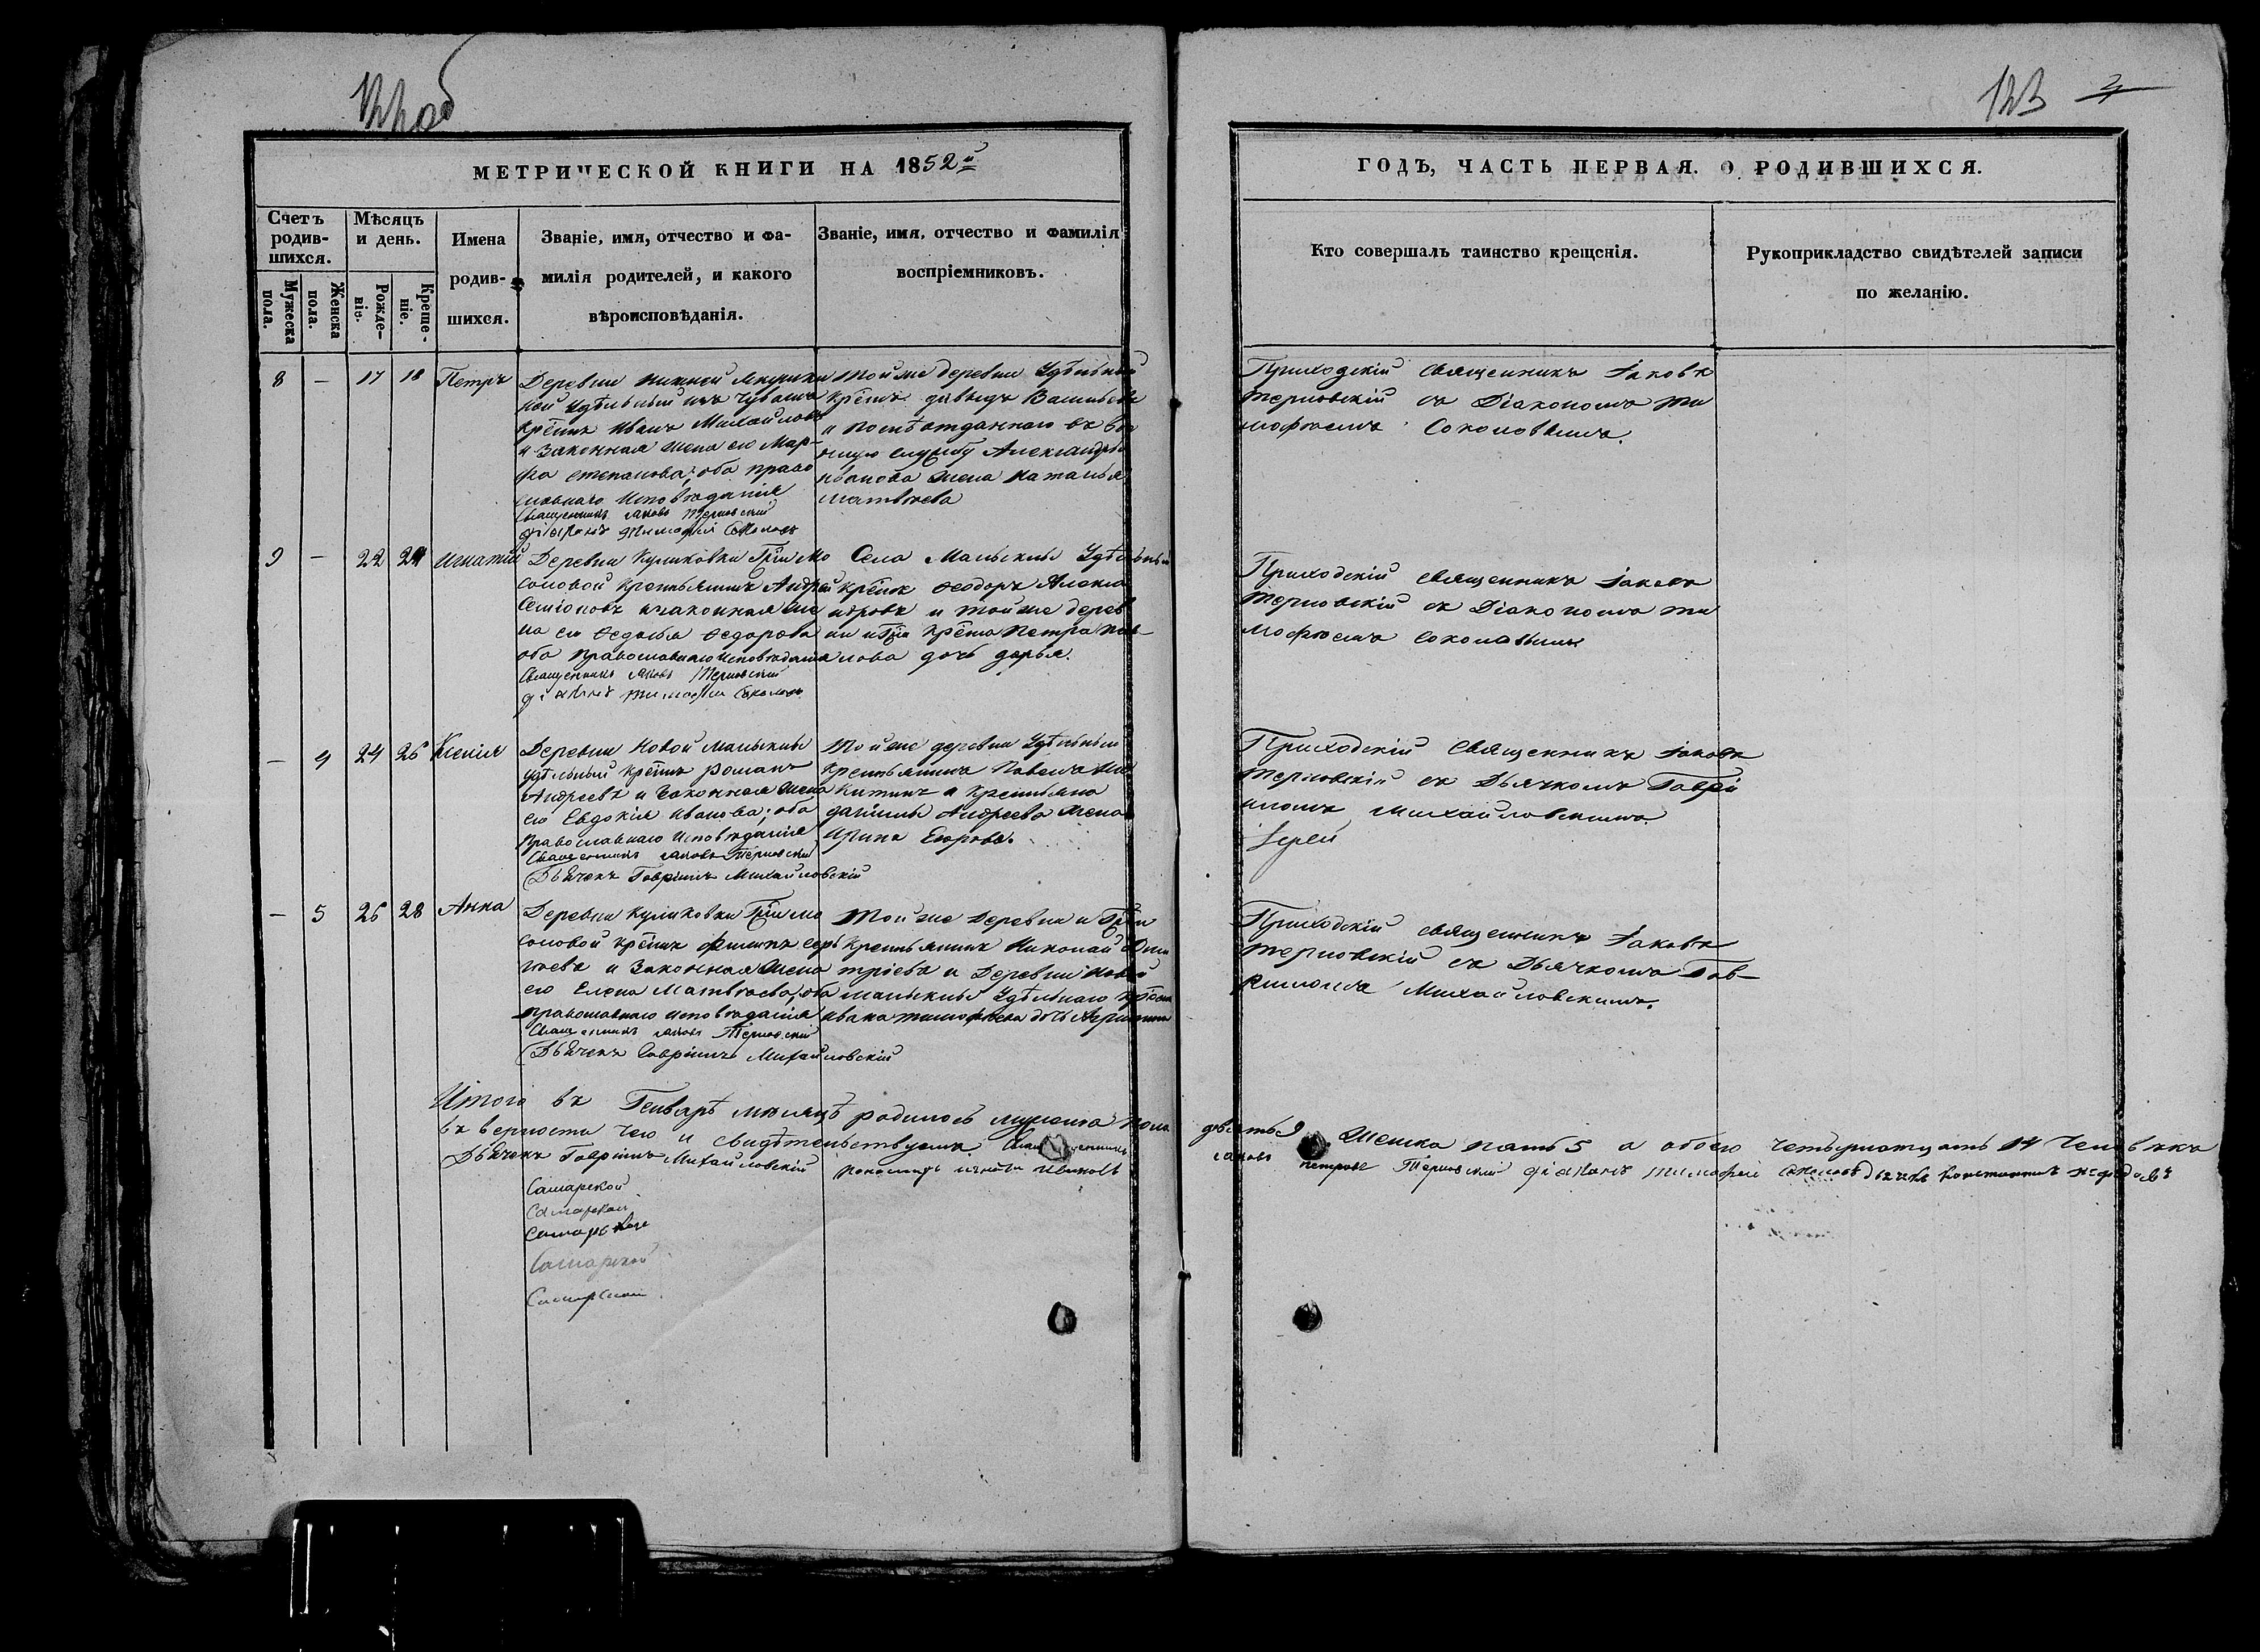 122 об
123
МЕТРИЧЕСКОЙ КНИГИ НА 1852й
ГОДЪ, ЧАСТЬ ПЕРВАЯ. О РОДИВШИХСЯ.
Счетъ родив-шихся.
Мужеска пола.
Женска пола.
Мѣсяцъ и день.
Рожде-нія.
Креще-ніе.
Имена
родив-
шихся.
Званіе, имя, отчество и фа-
милія родителей, и какого
вѣроисповѣданія.
Званіе, имя, отчество и фамилія
воспріемниковъ.
Кто совершалъ таинство крещенія.
Рукоприкладство свидѣтелей записи
по желанію.
8 — 17 18 Петръ
Деревни нижней
удѣльный изъ чувашъ
крѣнъ Иванъ Михайловъ
и законная жена его Мар-
фа степанова; оба право
славнаго исповѣданія
Священникъ Іаковъ Терновскій
діаконъ Тимофей Соколовъ
Тойже деревни Удѣльный
крѣнъ давыдъ Васильевъ
и отданнаго въ во
службу Александра
иванова жена наталья
матвѣева
Приходскій священникъ Іаковъ
терновскій съ Діакономъ ти
мофѣемъ Соколовымъ.
9 — 22 24 игнатій
Деревни Куликовки
соловой крестьянинъ Андрей
Семіоновъ и законная же
на его Федорова
оба православнаго исповѣданія
Священникъ Іаковъ Терновскій
діаконъ тимофей Соколовъ
Села Малыклы Удѣльный
крѣнъ Феодоръ Алекса
ндровъ и тойже дерев
ни крѣна Петра пав-
лова дочь дарья.
Приходскій священникъ Іаковъ
терновскій съ Діакономъ ти
мофѣемъ Соколовымъ
— 4 24 26 Ксенія
Деревни Новой малыклы
удѣльный крѣнъ романъ
Андреевъ и законная жена
его Евдокія иванова; оба
Православнаго исповѣданія
Священникъ Іаковъ Терновскій
Дьячекъ Гавріилъ Михайловскій
Тойже деревни Удѣльный
крестьянинъ Павелъ ни
китинъ и крестьяна
данилы Андреева жена
Ирина Егорова.
Приходскій Священникъ Іаковъ
терновскій съ Дьячкомъ Гаврі
иломъ михайловскимъ.
Іерей
— 5 26 28 Анна
Деревни куликовки
соловой крѣнъ филипъ сер
гѣевъ и законная жена
его Елена Матвѣева; оба
православнаго исповѣданія
Священникъ Іаковъ Терновскій
Дьячекъ Гавріилъ Михайловскій
Тойже деревни
крестьянинъ николай Дми
тріевъ и Деревни новой
малыклы Удѣльнаго крѣна
ивана тимофѣева дочь Агрипина
Приходскій священникъ Іаковъ
терновскій съ Дьячкомъ Гав-
риломъ Михайловскимъ.
Итого въ Генварѣ мѣсяцѣ родилось мужеска пола девять 9 Женска пять 5 а обоего четырнатцать 14 человѣкъ
въ верности чего и свидѣтельствуемъ. Священникъ Іаковъ петровъ Терновскій діаконъ тимофей Соколовъ дьячекъ константинъ
Дьячекъ Гавріилъ Михайловскій пономарь Ивановъ
Самарской
Самарской
Самарской
Самарской
Самарской